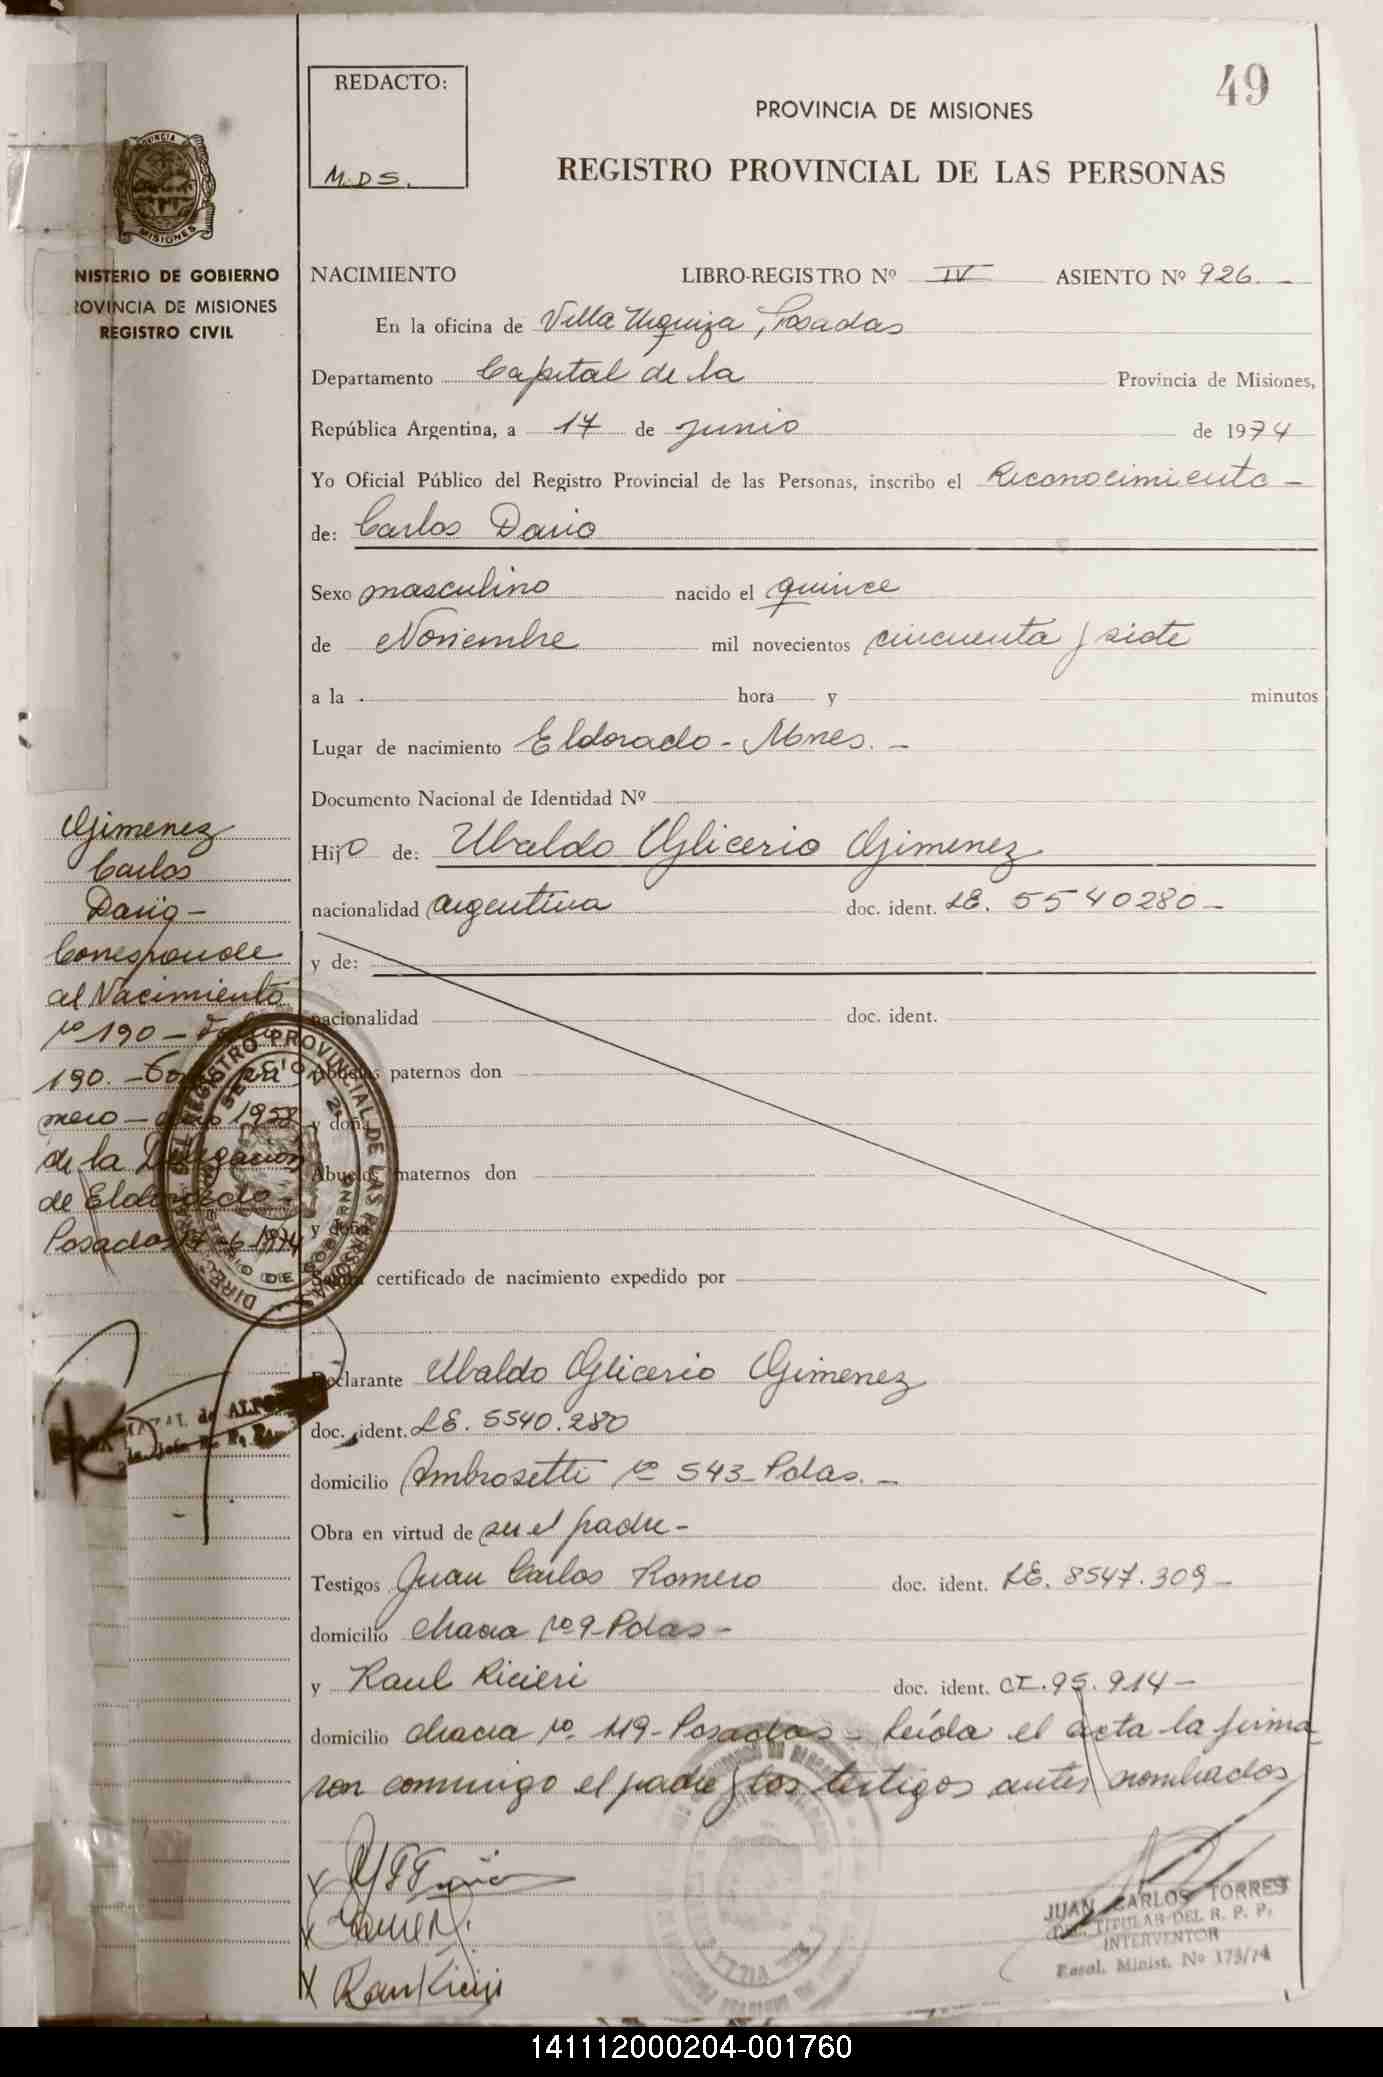 49
REDACTO:
M.D.S.
PROVINCIA DE MISIONES
REGISTRO PROVINCIAL DE LAS PERSONAS
PROVINCIA
MISIONES
NISTERIO DE GOBIERNO
ROVINCIA DE MISIONES
REGISTRO CIVIL
NACIMIENTO LIBRO-REGISTRO Nº IV ASIENTO Nº 926.-
En la oficina de Villa Urquiza, Posadas
Departamento Capital de la Provincia de Misiones,
República Argentina, a 17 de junio de 1974
Yo Oficial Público del Registro Provincial de las Personas, inscribo el Reconocimiento -
de: Carlos Dario
Sexo masculino nacido el quince
de Noviembre mil novecientos cincuenta y siete
a la hora y minutos
Lugar de nacimiento Eldorado - Mnes. -
Documento Nacional de Identidad Nº
Hijo de: Ubaldo Glicerio Gimenez
nacionalidad argentina doc. ident. LE. 5540280-
y de:
nacionalidad doc. ident.
Abuelos paternos don
y doña
Abuelos maternos don
y doña
certificado de nacimiento expedido por
Declarante Ubaldo Glicerio Gimenez
doc. ident. LE. 5540.280
domicilio Ambrosetti nº 543-Pdas. -
Obra en virtud de ser el padre -
Testigos Juan Carlos Romero doc. ident. LE. 8547.309-
domicilio chacra nº 9-Pdas-
y Raul Ricieri doc. ident. CI. 95.914-
domicilio chacra nº 119-Posadas - Leída el acta la firma
ron conmigo el padre y los testigos antes nombrados
Gimenez
Carlos
Dario-
Corresponde
al Nacimiento
nº 190 - folio
190. - Tomo pri
mero - año 1958
de la Delegación
de Eldorado -
Posadas 17-6-1974
DIREC. DEL REGISTRO PROVINCIAL DE LAS PERSONAS
SECCION 2
MINISTERIO DE GOBIERNO
de ALFO
JUAN CARLOS TORRES
TITULAR DEL R. P. P.
INTERVENTOR
Resol. Minist. Nº 173/74
141112000204-001760